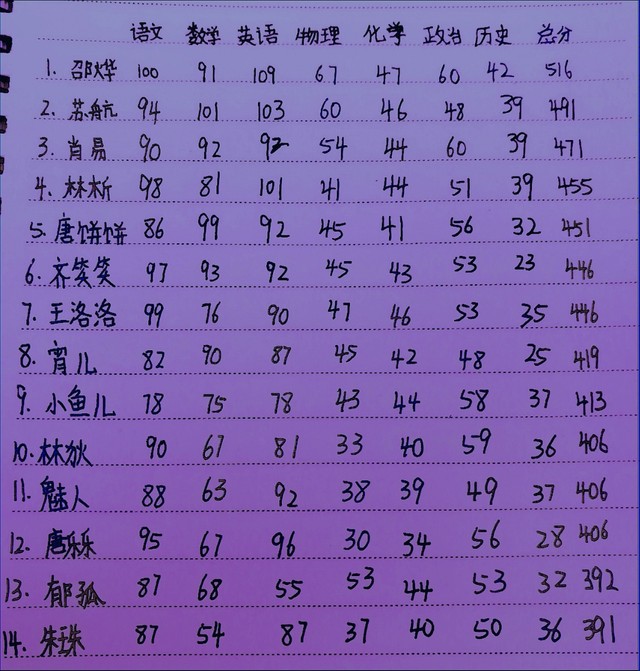 语文 数学 英语 物理 化学 政治 历史 总分
1. 邵烨 100 91 109 67 47 60 42 516
2. 苏航 94 101 103 60 46 48 39 491
3. 肖易 90 92 92 54 44 60 39 471
4. 林析 98 81 101 41 44 51 39 455
5. 唐饼饼 86 99 92 45 41 56 32 451
6. 齐笑笑 97 93 92 45 43 53 23 446
7. 王洛洛 99 76 90 47 46 53 35 446
8. 宵儿 82 90 87 45 42 48 25 419
9. 小鱼儿 78 75 78 43 44 58 37 413
10. 林狄 90 67 81 33 40 59 36 406
11. 魅人 88 63 92 38 39 49 37 406
12. 唐乐乐 95 67 96 30 34 56 28 406
13. 郁孤 87 68 55 53 44 53 32 392
14. 朱珠 87 54 87 37 40 50 36 391